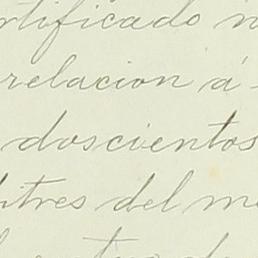 rtificado
relacion á
doscientos
litres del